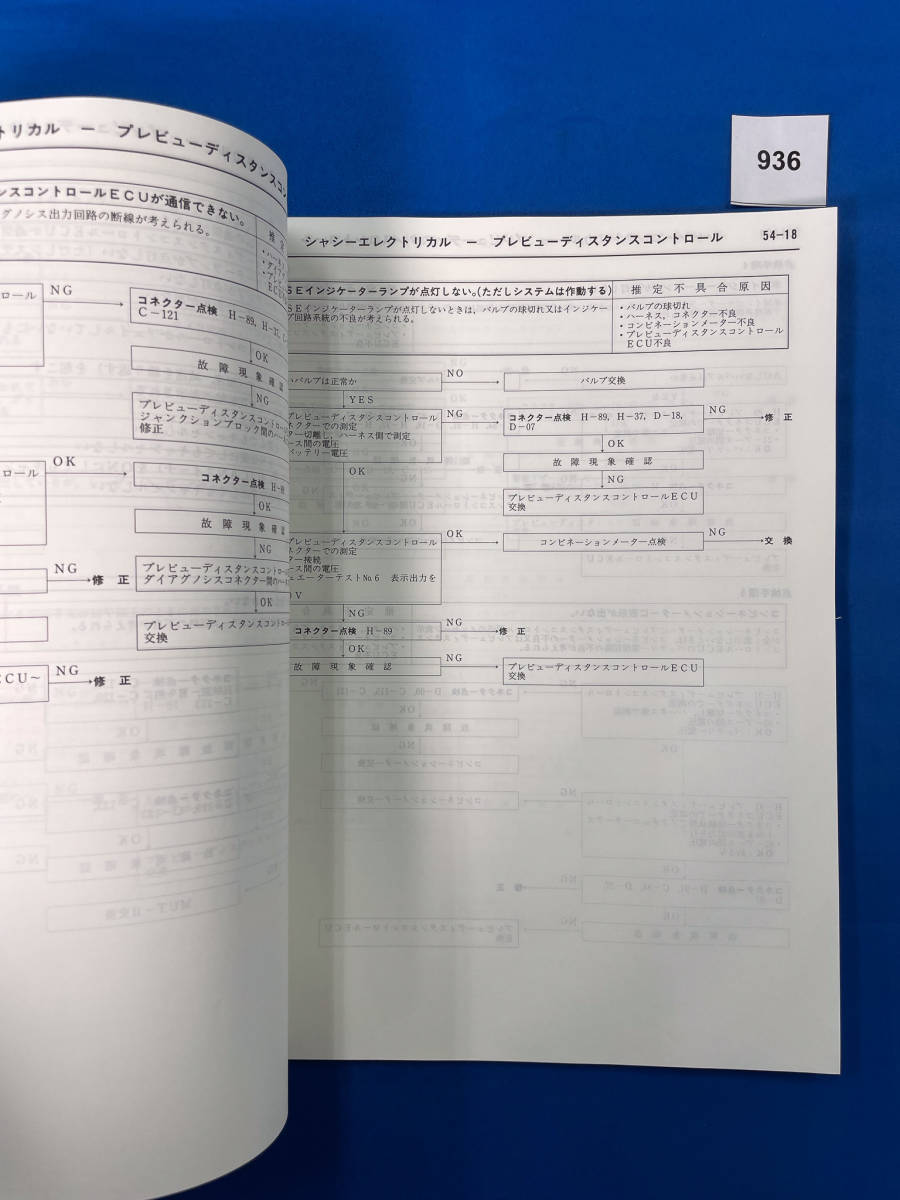 936
トリカル － プレビューディスタンスコン
ンスコントロールＥＣＵが通信できない。
グノシス出力回路の断線が考えられる。
推 定
・ハーネ
・ダイア
・プレビ
ＥＣＵ
ロール
NG
コネクター点検 H－89, H－37, C－
C－121
OK
故 障 現 象 確 認
NG
プレビューディスタンスコントロー
ジャンクションブロック間のハー
修正
ロール
OK
コネクター点検 H－89
OK
故 障 現 象 確 認
NG
プレビューディスタンスコントロー
ダイアグノシスコネクター間のハー
NG
修 正
OK
プレビューディスタンスコントロー
交換
ECU～
NG
修 正
シャシーエレクトリカル － プレビューディスタンスコントロール 54－18
ＳＥインジケーターランプが点灯しない。(ただしシステムは作動する)
推 定 不 具 合 原 因
ＳＥインジケーターランプが点灯しないときは，バルブの球切れ又はインジケー
回路系統の不良が考えられる。
・バルブの球切れ
・ハーネス，コネクター不良
・コンビネーションメーター不良
・プレビューディスタンスコントロール
ＥＣＵ不良
バルブは正常か
NO
バルブ交換
YES
プレビューディスタンスコントロール
ネクターでの測定
ター切離し，ハーネス側で測定
ース間の電圧
バッテリー電圧
NG
コネクター点検 H－89, H－37, D－18,
D－07
NG
修 正
OK
故 障 現 象 確 認
NG
プレビューディスタンスコントロールＥＣＵ
交換
OK
プレビューディスタンスコントロール
ネクターでの測定
ター接続
ース間の電圧
ュエーターテストNo.6 表示出力を
V
OK
コンビネーションメーター点検
NG
交 換
NG
コネクター点検 H－89
NG
修 正
OK
故 障 現 象 確 認
NG
プレビューディスタンスコントロールＥＣＵ
交換